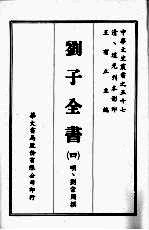 中華文史叢書之五十七
清、道光刊本影印
王有立主編
劉子全書
(四)
明、劉宗周撰
華文書局股份有限公司印行